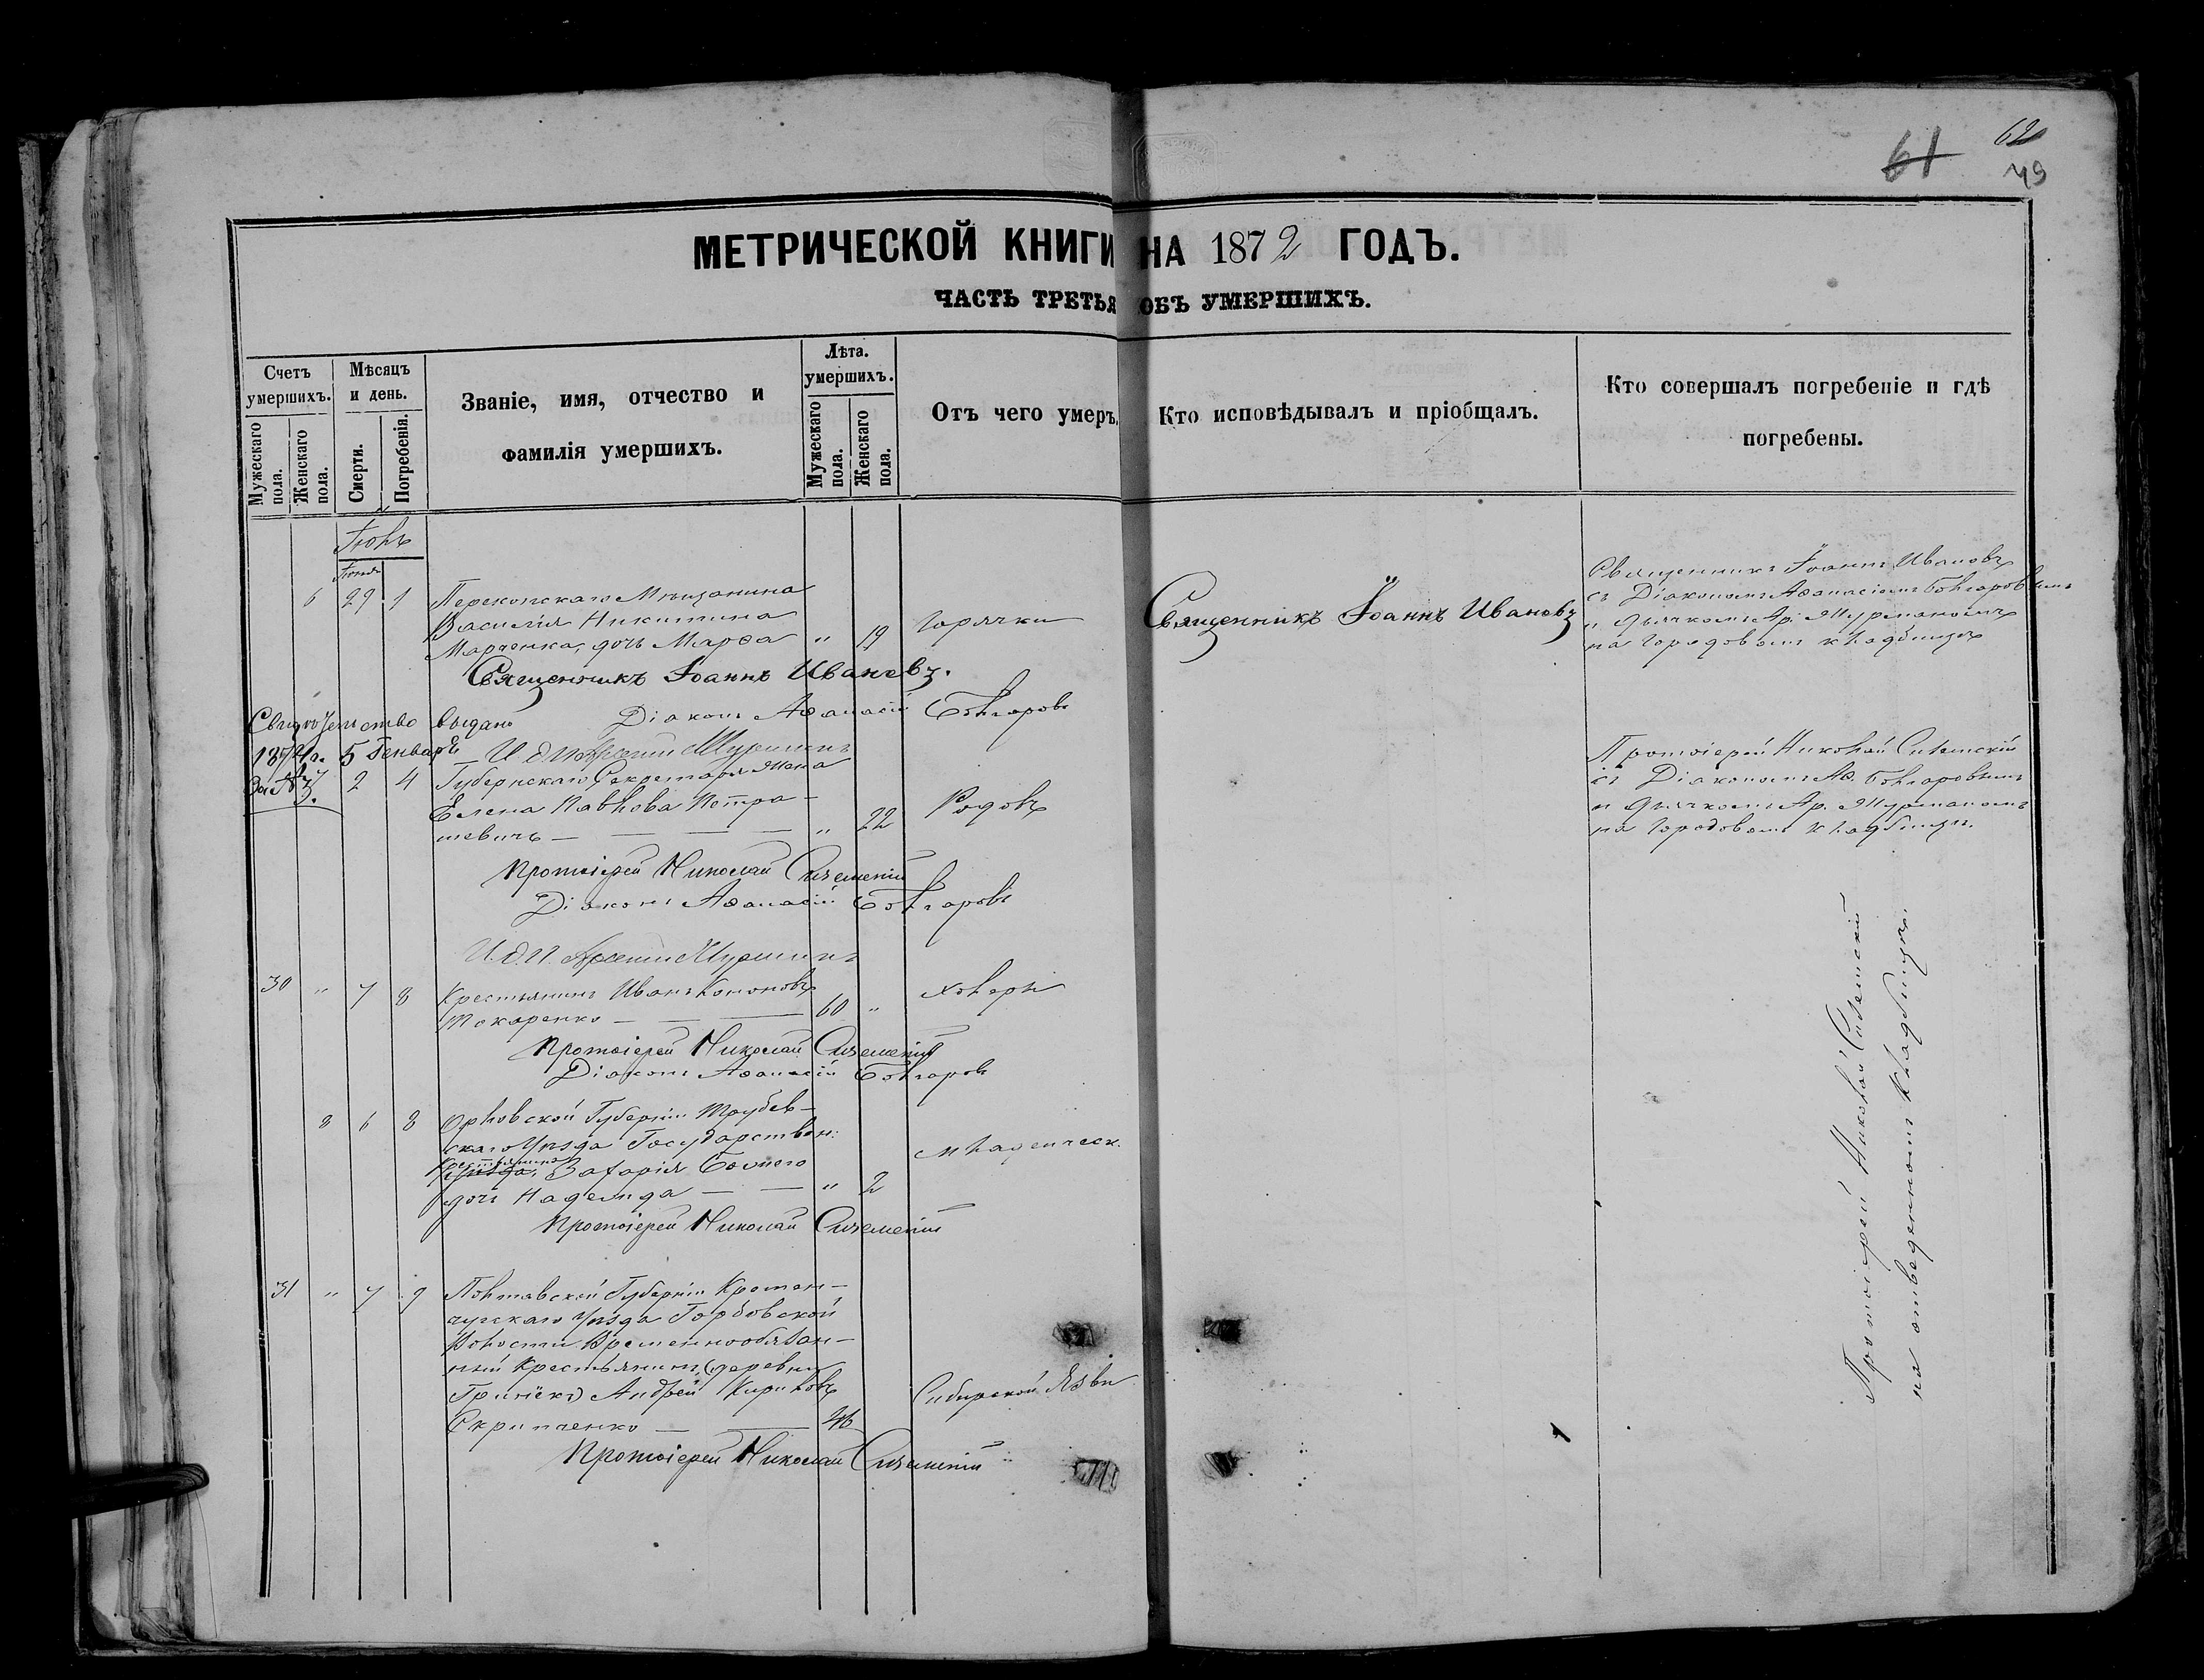 61
62
49
МЕТРИЧЕСКОЙ КНИГИ НА 1872 ГОДЪ.
ЧАСТЬ ТРЕТЬЯ ОБЪ УМЕРШИХЪ.
Счетъ умершихъ.
Мужескаго пола.
Женскаго пола.
Мѣсяцъ и день.
Смерти.
Погребенія.
Званіе, имя, отчество и
фамилія умершихъ.
Лѣта.
умершихъ.
Мужескаго пола.
Женскаго пола.
Отъ чего умеръ.
Кто исповѣдывалъ и пріобщалъ.
Кто совершалъ погребеніе и гдѣ
погребены.
Іюль
Іюня
6 29 1 Перекопскаго Мѣщанина
Василія Никитина
Марченка, дочь Марѳа " 19 Горячки
Священникъ Іоаннъ Ивановъ
Священникъ Іоаннъ Ивановъ
съ Діакономъ Аѳанасіемъ Болгаровымъ
и Дьячкомъ Ар.
на Городовомъ кладбищѣ
Священникъ Іоаннъ Ивановъ.
Діаконъ Аѳанасій Болгаровъ
Свидѣтельство выдано
1874 г. 5 Генваря
За № 3.
7 2 4 Губернскаго Секретаря Жена
Елена Павлова Петра-
шевичъ — — — — " 22 Родовъ
Протоіерей Николай
съ Діакономъ Аѳ. Болгаровымъ
и Дьячкомъ Ар.
на Городовомъ кладбищѣ.
Протоіерей Николай
Діаконъ Аѳанасій Болгаровъ
И.д.П. Арсеній
30 " 7 8 Крестьянинъ Иванъ Кононовъ
Токаренко — — 60 " Холеры
Протоіерей Николай
Діаконъ Аѳанасій Болгаровъ
8 6 8 Орловской Губерніи Трубчев-
скаго Уѣзда Государствен:
Крестьянина Захарія
дочь Надежда — — " 2 Младенческ.
Протоіерей Николай
31 " 7 9 Полтавской Губерніи Кремен-
чугскаго Уѣзда Горбовской
Волости Временнообязан-
ный Крестьянинъ, (деревни
Андрей Кириловъ
Скрипченко — — 46 Сибирской Язвы
Протоіерей Николай
Протоіерей Николай
на отведенномъ кладбищѣ.